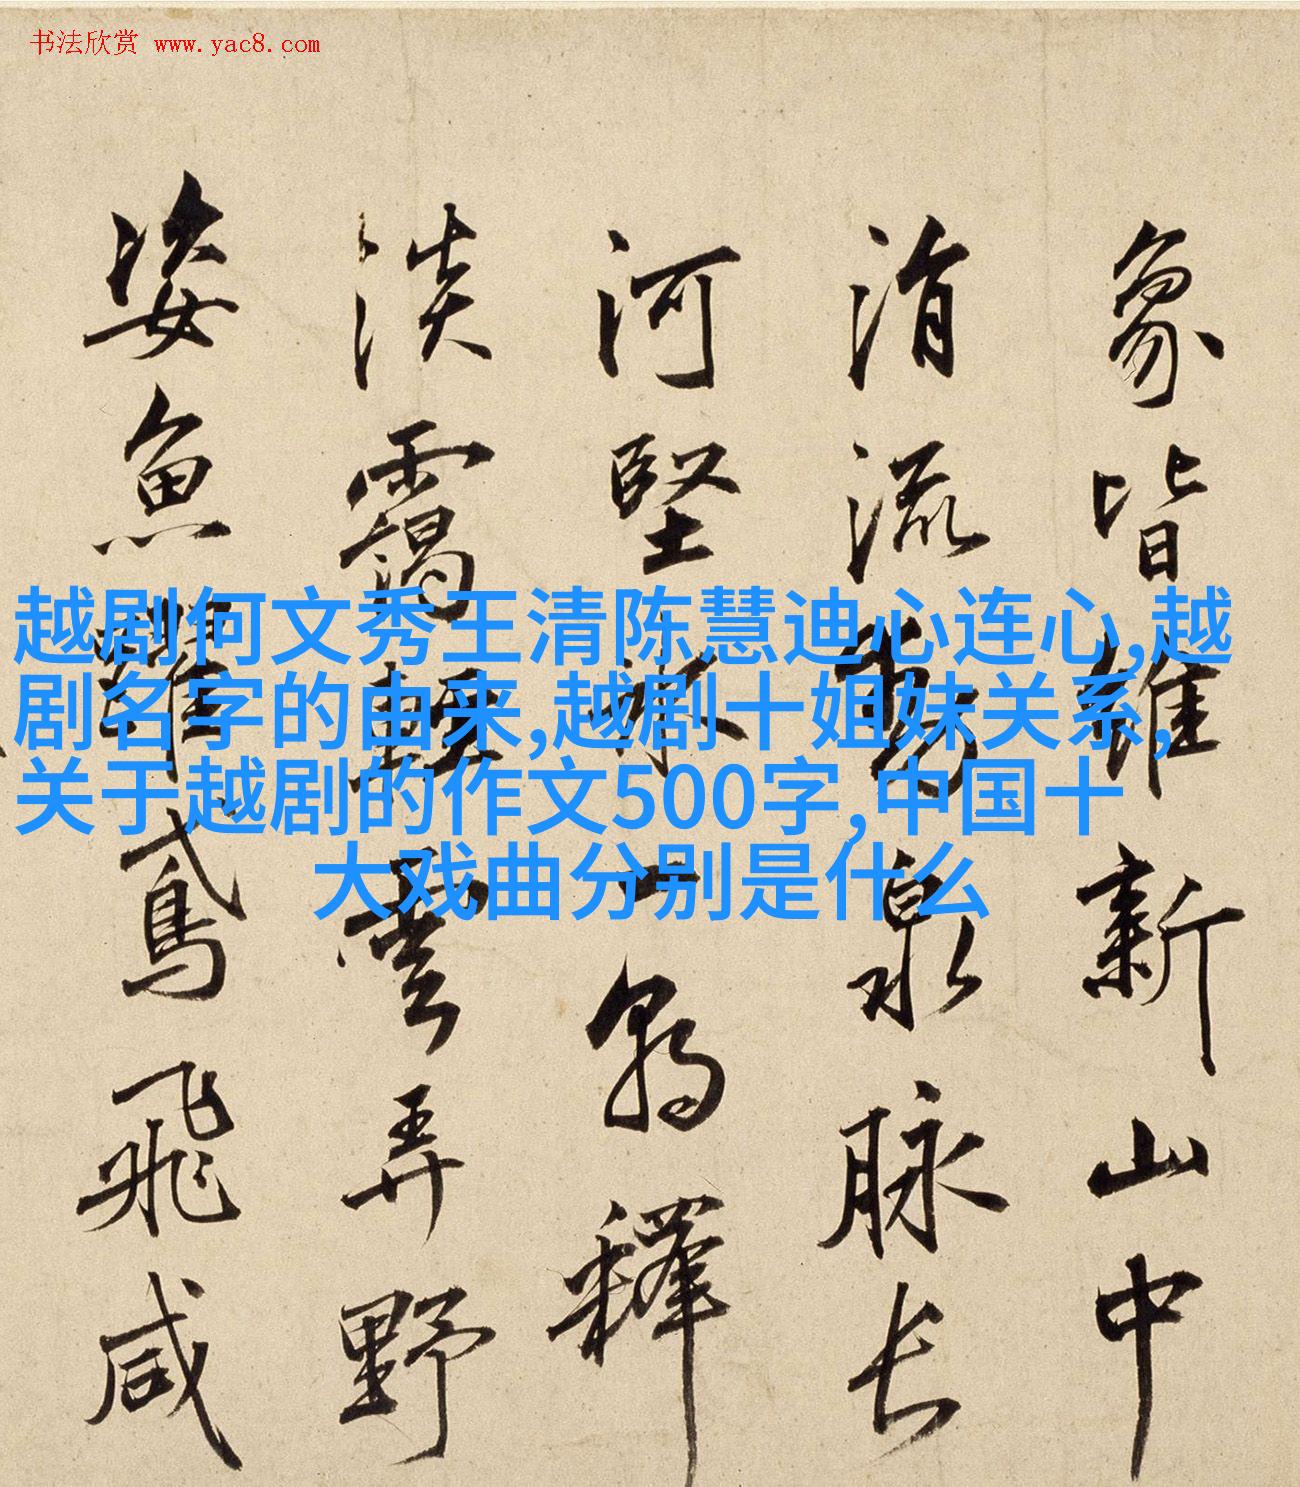 书法欣赏 www.yac8.com
越剧何文秀王清陈慧迪心连心,越
剧名字的由来,越剧十姐妹关系,
关于越剧的作文500字,中国十
大戏曲分别是什么
象皆維新山中
涓流
泉脉长
河堅冰一朝釋
淡靄輕雲弄野
姿魚躍鳶飛咸